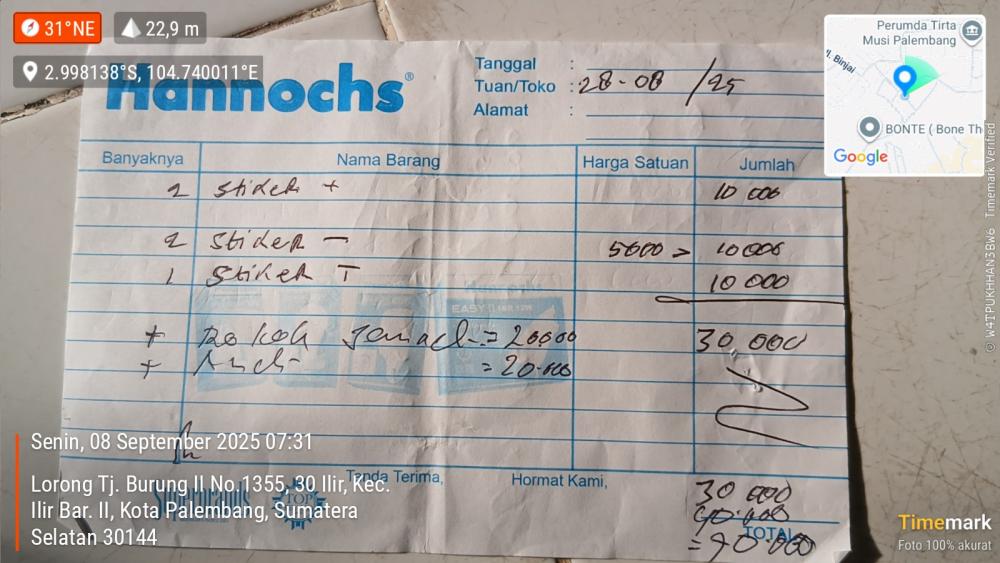 31°NE
22,9 m
2.998138°S, 104.740011°E
Perumda Tirta
Musi Palembang
Jl. Binjai
BONTE ( Bone Th
Google
Hannochs®
Tanggal :
Tuan/Toko : 28-08/25
Alamat :
Banyaknya Nama Barang Harga Satuan Jumlah
2 Stiker + 10 000
2 Stiker - 5000 > 10 000
1 Stiker T 10 000
EASY
30 000
+ = 20000
+ = 20.000
Tanda Terima, Hormat Kami,
TOP
30 000
TOTAL
= 70.000
Senin, 08 September 2025 07:31
Lorong Tj. Burung II No.1355, 30 Ilir, Kec.
Ilir Bar. II, Kota Palembang, Sumatera
Selatan 30144
Timemark
Foto 100% akurat
© W4TPUKHHAN3BW6 Timemark Verified